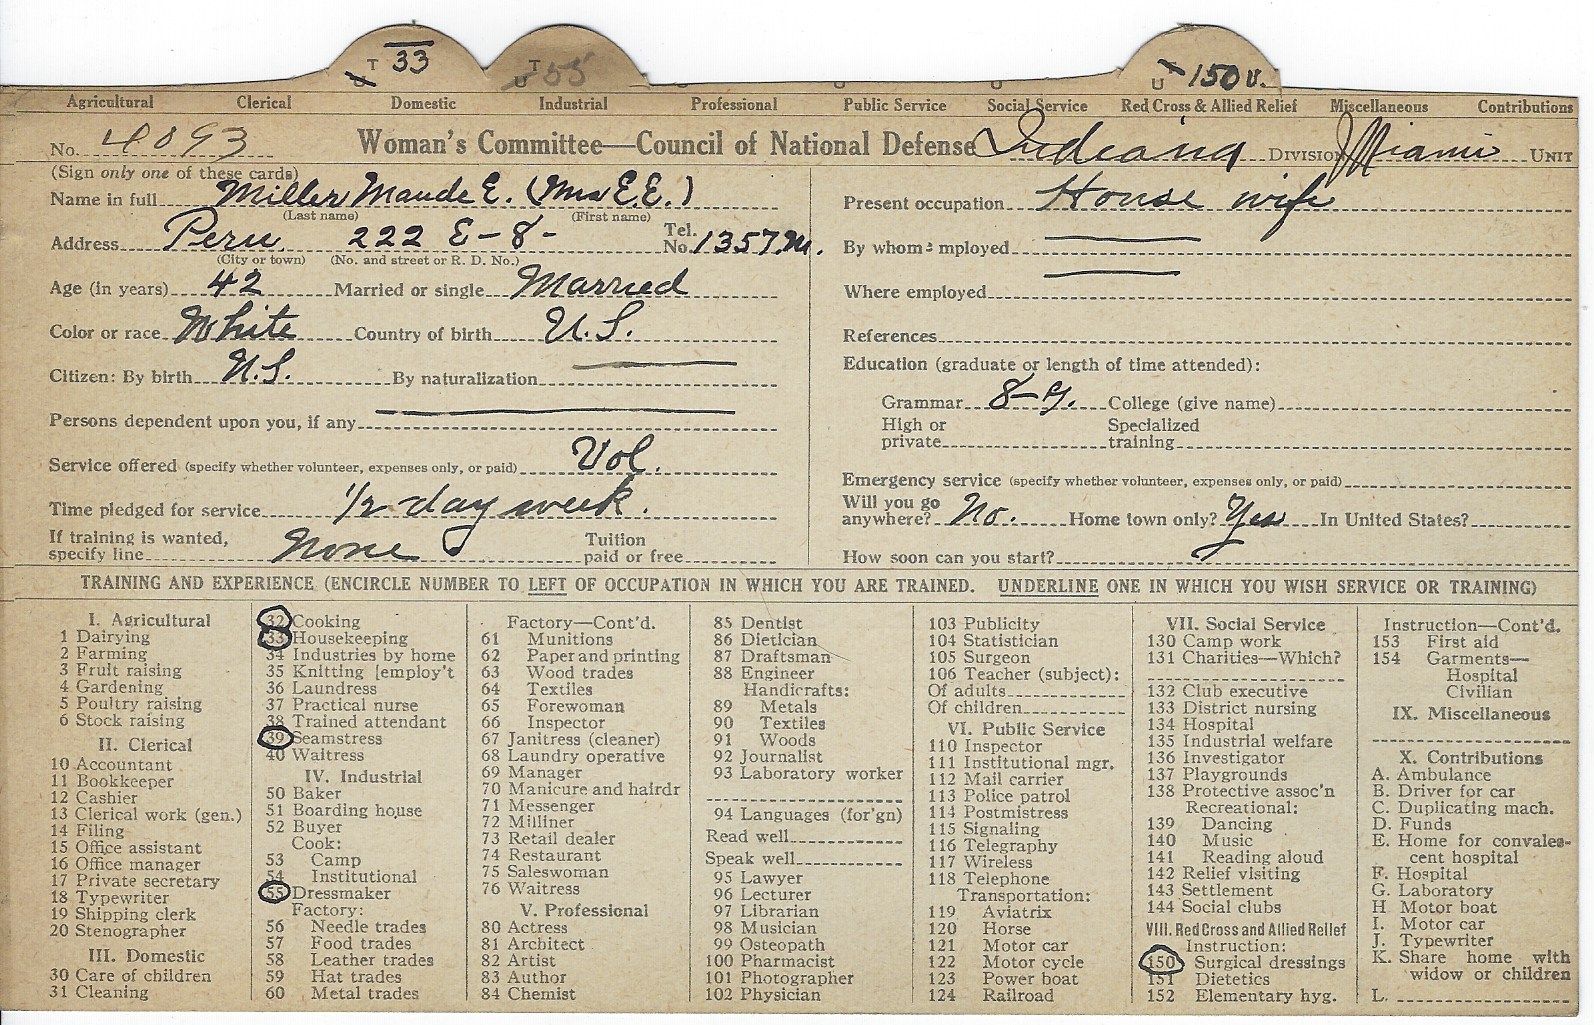 T 33
U
T 55
U
U 150 v.
Agricultural Clerical Domestic Industrial Professional Public Service Social Service Red Cross & Allied Relief Miscellaneous Contributions
No. 4093 Woman's Committee—Council of National Defense Indiana DIVISION Miami UNIT
(Sign only one of these cards)
Name in full Miller Maude E. (Mrs E.E.)
(Last name) (First name)
Address Peru 222 E-8- Tel. No. 1357.M.
(City or town) (No. and street or R. D. No.)
Age (in years) 42 Married or single Married
Color or race White Country of birth U.S.
Citizen: By birth U.S. By naturalization
Persons dependent upon you, if any
Service offered (specify whether volunteer, expenses only, or paid) Vol.
Time pledged for service 1/2 day week.
If training is wanted, specify line None Tuition paid or free
Present occupation House wife
By whom employed
Where employed
References
Education (graduate or length of time attended):
Grammar 8-y. College (give name)
High or private Specialized training
Emergency service (specify whether volunteer, expenses only, or paid)
Will you go anywhere? No. Home town only? Yes In United States?
How soon can you start?
TRAINING AND EXPERIENCE (ENCIRCLE NUMBER TO LEFT OF OCCUPATION IN WHICH YOU ARE TRAINED. UNDERLINE ONE IN WHICH YOU WISH SERVICE OR TRAINING)
I. Agricultural
1 Dairying
2 Farming
3 Fruit raising
4 Gardening
5 Poultry raising
6 Stock raising
II. Clerical
10 Accountant
11 Bookkeeper
12 Cashier
13 Clerical work (gen.)
14 Filing
15 Office assistant
16 Office manager
17 Private secretary
18 Typewriter
19 Shipping clerk
20 Stenographer
III. Domestic
30 Care of children
31 Cleaning
32 Cooking
33 Housekeeping
34 Industries by home
35 Knitting [employ't
36 Laundress
37 Practical nurse
38 Trained attendant
39 Seamstress
40 Waitress
IV. Industrial
50 Baker
51 Boarding house
52 Buyer
Cook:
53 Camp
54 Institutional
55 Dressmaker
Factory:
56 Needle trades
57 Food trades
58 Leather trades
59 Hat trades
60 Metal trades
Factory—Cont'd.
61 Munitions
62 Paper and printing
63 Wood trades
64 Textiles
65 Forewoman
66 Inspector
67 Janitress (cleaner)
68 Laundry operative
69 Manager
70 Manicure and hairdr
71 Messenger
72 Milliner
73 Retail dealer
74 Restaurant
75 Saleswoman
76 Waitress
V. Professional
80 Actress
81 Architect
82 Artist
83 Author
84 Chemist
85 Dentist
86 Dietician
87 Draftsman
88 Engineer
Handicrafts:
89 Metals
90 Textiles
91 Woods
92 Journalist
93 Laboratory worker
94 Languages (for'gn)
Read well
Speak well
95 Lawyer
96 Lecturer
97 Librarian
98 Musician
99 Osteopath
100 Pharmacist
101 Photographer
102 Physician
103 Publicity
104 Statistician
105 Surgeon
106 Teacher (subject):
Of adults
Of children
VI. Public Service
110 Inspector
111 Institutional mgr.
112 Mail carrier
113 Police patrol
114 Postmistress
115 Signaling
116 Telegraphy
117 Wireless
118 Telephone
Transportation:
119 Aviatrix
120 Horse
121 Motor car
122 Motor cycle
123 Power boat
124 Railroad
VII. Social Service
130 Camp work
131 Charities—Which?
132 Club executive
133 District nursing
134 Hospital
135 Industrial welfare
136 Investigator
137 Playgrounds
138 Protective assoc'n
Recreational:
139 Dancing
140 Music
141 Reading aloud
142 Relief visiting
143 Settlement
144 Social clubs
VIII. Red Cross and Allied Relief
Instruction:
150 Surgical dressings
151 Dietetics
152 Elementary hyg.
Instruction—Cont'd.
153 First aid
154 Garments—
Hospital
Civilian
IX. Miscellaneous
X. Contributions
A. Ambulance
B. Driver for car
C. Duplicating mach.
D. Funds
E. Home for convales-
cent hospital
F. Hospital
G. Laboratory
H. Motor boat
I. Motor car
J. Typewriter
K. Share home with
widow or children
L.